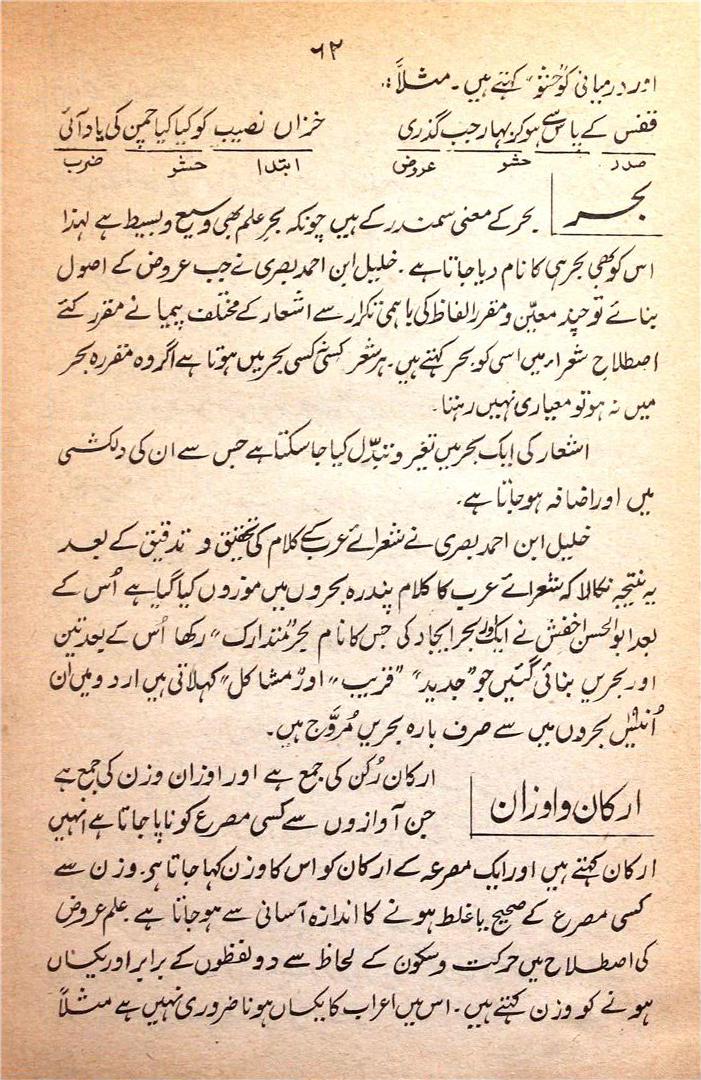 ۶۲
اور درمیانی کو "حشو" کہتے ہیں۔ مثلاً :۔
قفس کے پاس سے ہو کر بہار جب گذری خزاں نصیب کو کیا کیا چمن کی یاد آئی
صدر حشو عروض ابتدا حشو ضرب
بحر ۔ بحر کے معنی سمندر کے ہیں چونکہ بحرِ علم بھی وسیع و بسیط ہے لہذا
اس کو بھی بحر ہی کا نام دیا جاتا ہے ۔ خلیل ابن احمد بصری نے جب عروض کے اصول
بنائے تو چند معیّن و مقرر الفاظ کی باہمی تکرار سے اشعار کے مختلف پیمانے مقرر کئے
اصطلاحِ شعراء میں اسی کو بحر کہتے ہیں۔ ہر شعر کسی نہ کسی بحر میں ہوتا ہے اگر وہ مقررہ بحر
میں نہ ہو تو معیاری نہیں رہتا۔
اشعار کی ایک بحر میں تغیر و تبدّل کیا جا سکتا ہے جس سے ان کی دلکشی
میں اور اضافہ ہو جاتا ہے۔
خلیل ابن احمد بصری نے شعرائے عرب کے کلام کی تحقیق و تدقیق کے بعد
یہ نتیجہ نکالا کہ شعرائے عرب کا کلام پندرہ بحروں میں موزوں کیا گیا ہے اُس کے
بعد ابوالحسن اخفش نے ایک اور بحر ایجاد کی جس کا نام "بحر متدارک" رکھا اُس کے بعد تین
اور بحریں بنائی گئیں جو "جدید" "قریب" اور "مشاکل" کہلاتی ہیں اردو میں ان
اُنیس ۱۹ بحروں میں سے صرف بارہ بحریں مُروّج ہیں۔
ارکان و اوزان ارکان رُکن کی جمع ہے اور اوزان وزن کی جمع ہے
جن آوازوں سے کسی مصرع کو ناپا جاتا ہے انہیں
ارکان کہتے ہیں اور ایک مصرعہ کے ارکان کو اس کا وزن کہا جاتا ہے۔ وزن سے
کسی مصرع کے صحیح یا غلط ہونے کا اندازہ آسانی سے ہو جاتا ہے علم عروض
کی اصطلاح میں حرکت و سکون کے لحاظ سے دو لفظوں کے برابر اور یکساں
ہونے کو وزن کہتے ہیں۔ اس میں اعراب کا یکساں ہونا ضروری نہیں ہے مثلاً